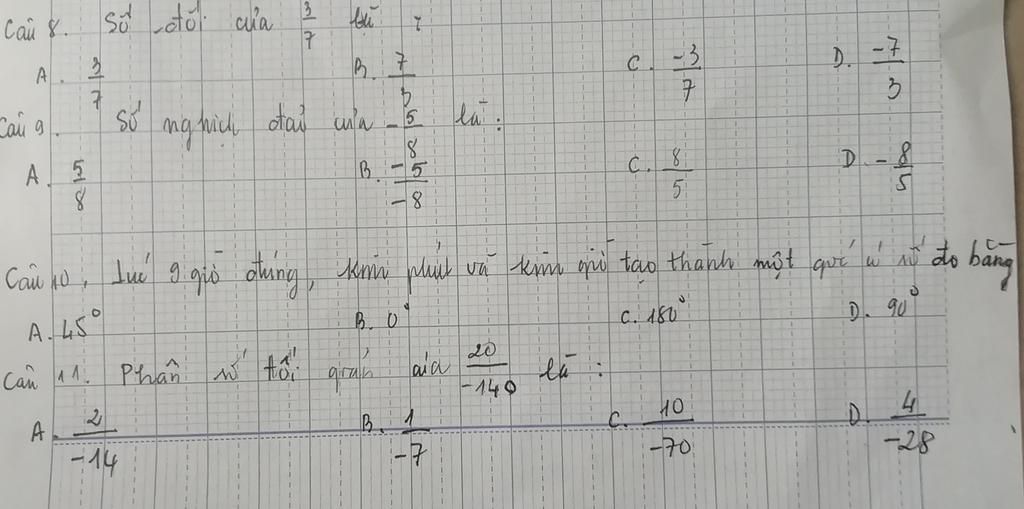 Câu 8. Số đối của 3/7 là :
A. 3/7 B. 7/3 C. -3/7 D. -7/3
Câu 9. Số nghịch đảo của -5/8 là :
A. 5/8 B. -5/-8 C. 8/5 D. -8/5
Câu 10, Lúc 9 giờ đúng, kim phút và kim giờ tạo thành một góc có số đo bằng
A. 45° B. 0° C. 180° D. 90°
Câu 11. Phân số tối giản của 20/-140 là :
A. 2/-14 B. 1/-7 C. 10/-70 D. 4/-28